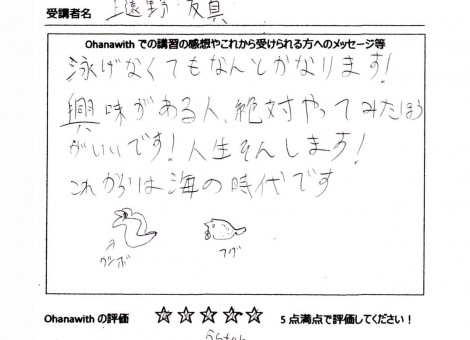 受講者名 上遠野 友真
Ohanawith での講習の感想やこれから受けられる方へのメッセージ等
泳げなくてもなんとかなります!
興味がある人、絶対やってみたほう
がいいです!人生そんします!
これからは海の時代です
ウツボ
フグ
Ohanawith の評価 ☆☆☆☆☆ 5 点満点で評価してください!